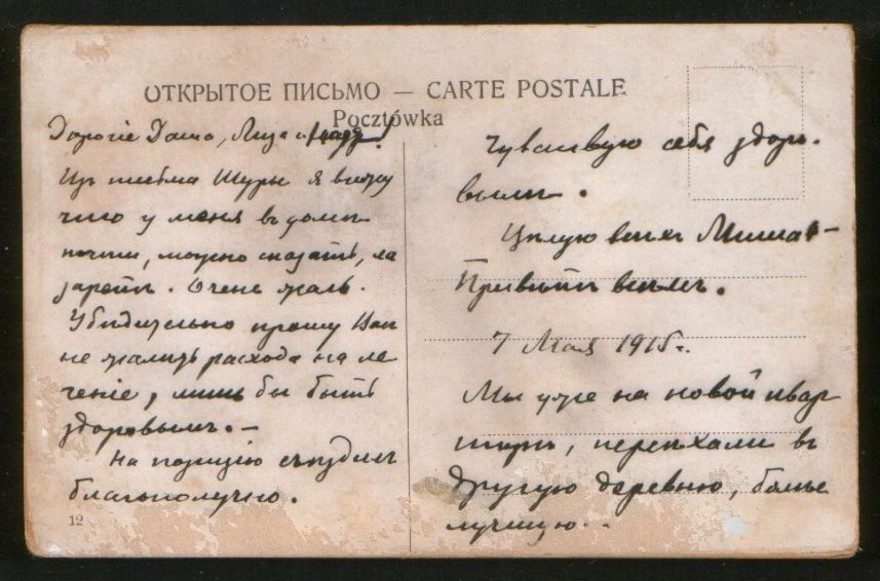 ОТКРЫТОЕ ПИСЬМО — CARTE POSTALE
Pocztówka
Дорогіе Даша, Лиза и Надя!
Изъ письма Шуры я вижу
что у меня въ доме
почти, можно сказать, ла
заретъ. Очень жаль.
Убедительно прошу Вас
не жалеть расхода на ле
ченіе, лишь бы быть
здоровымъ. —
На позицію съездилъ
благополучно.
12
Чувствую себя здоро-
вымъ.
Целую всехъ Миша —
Приветъ всемъ.
7 Мая 1915 г.
Мы уже на новой квар
тире, переехали въ
другую деревню, более
лучшую.